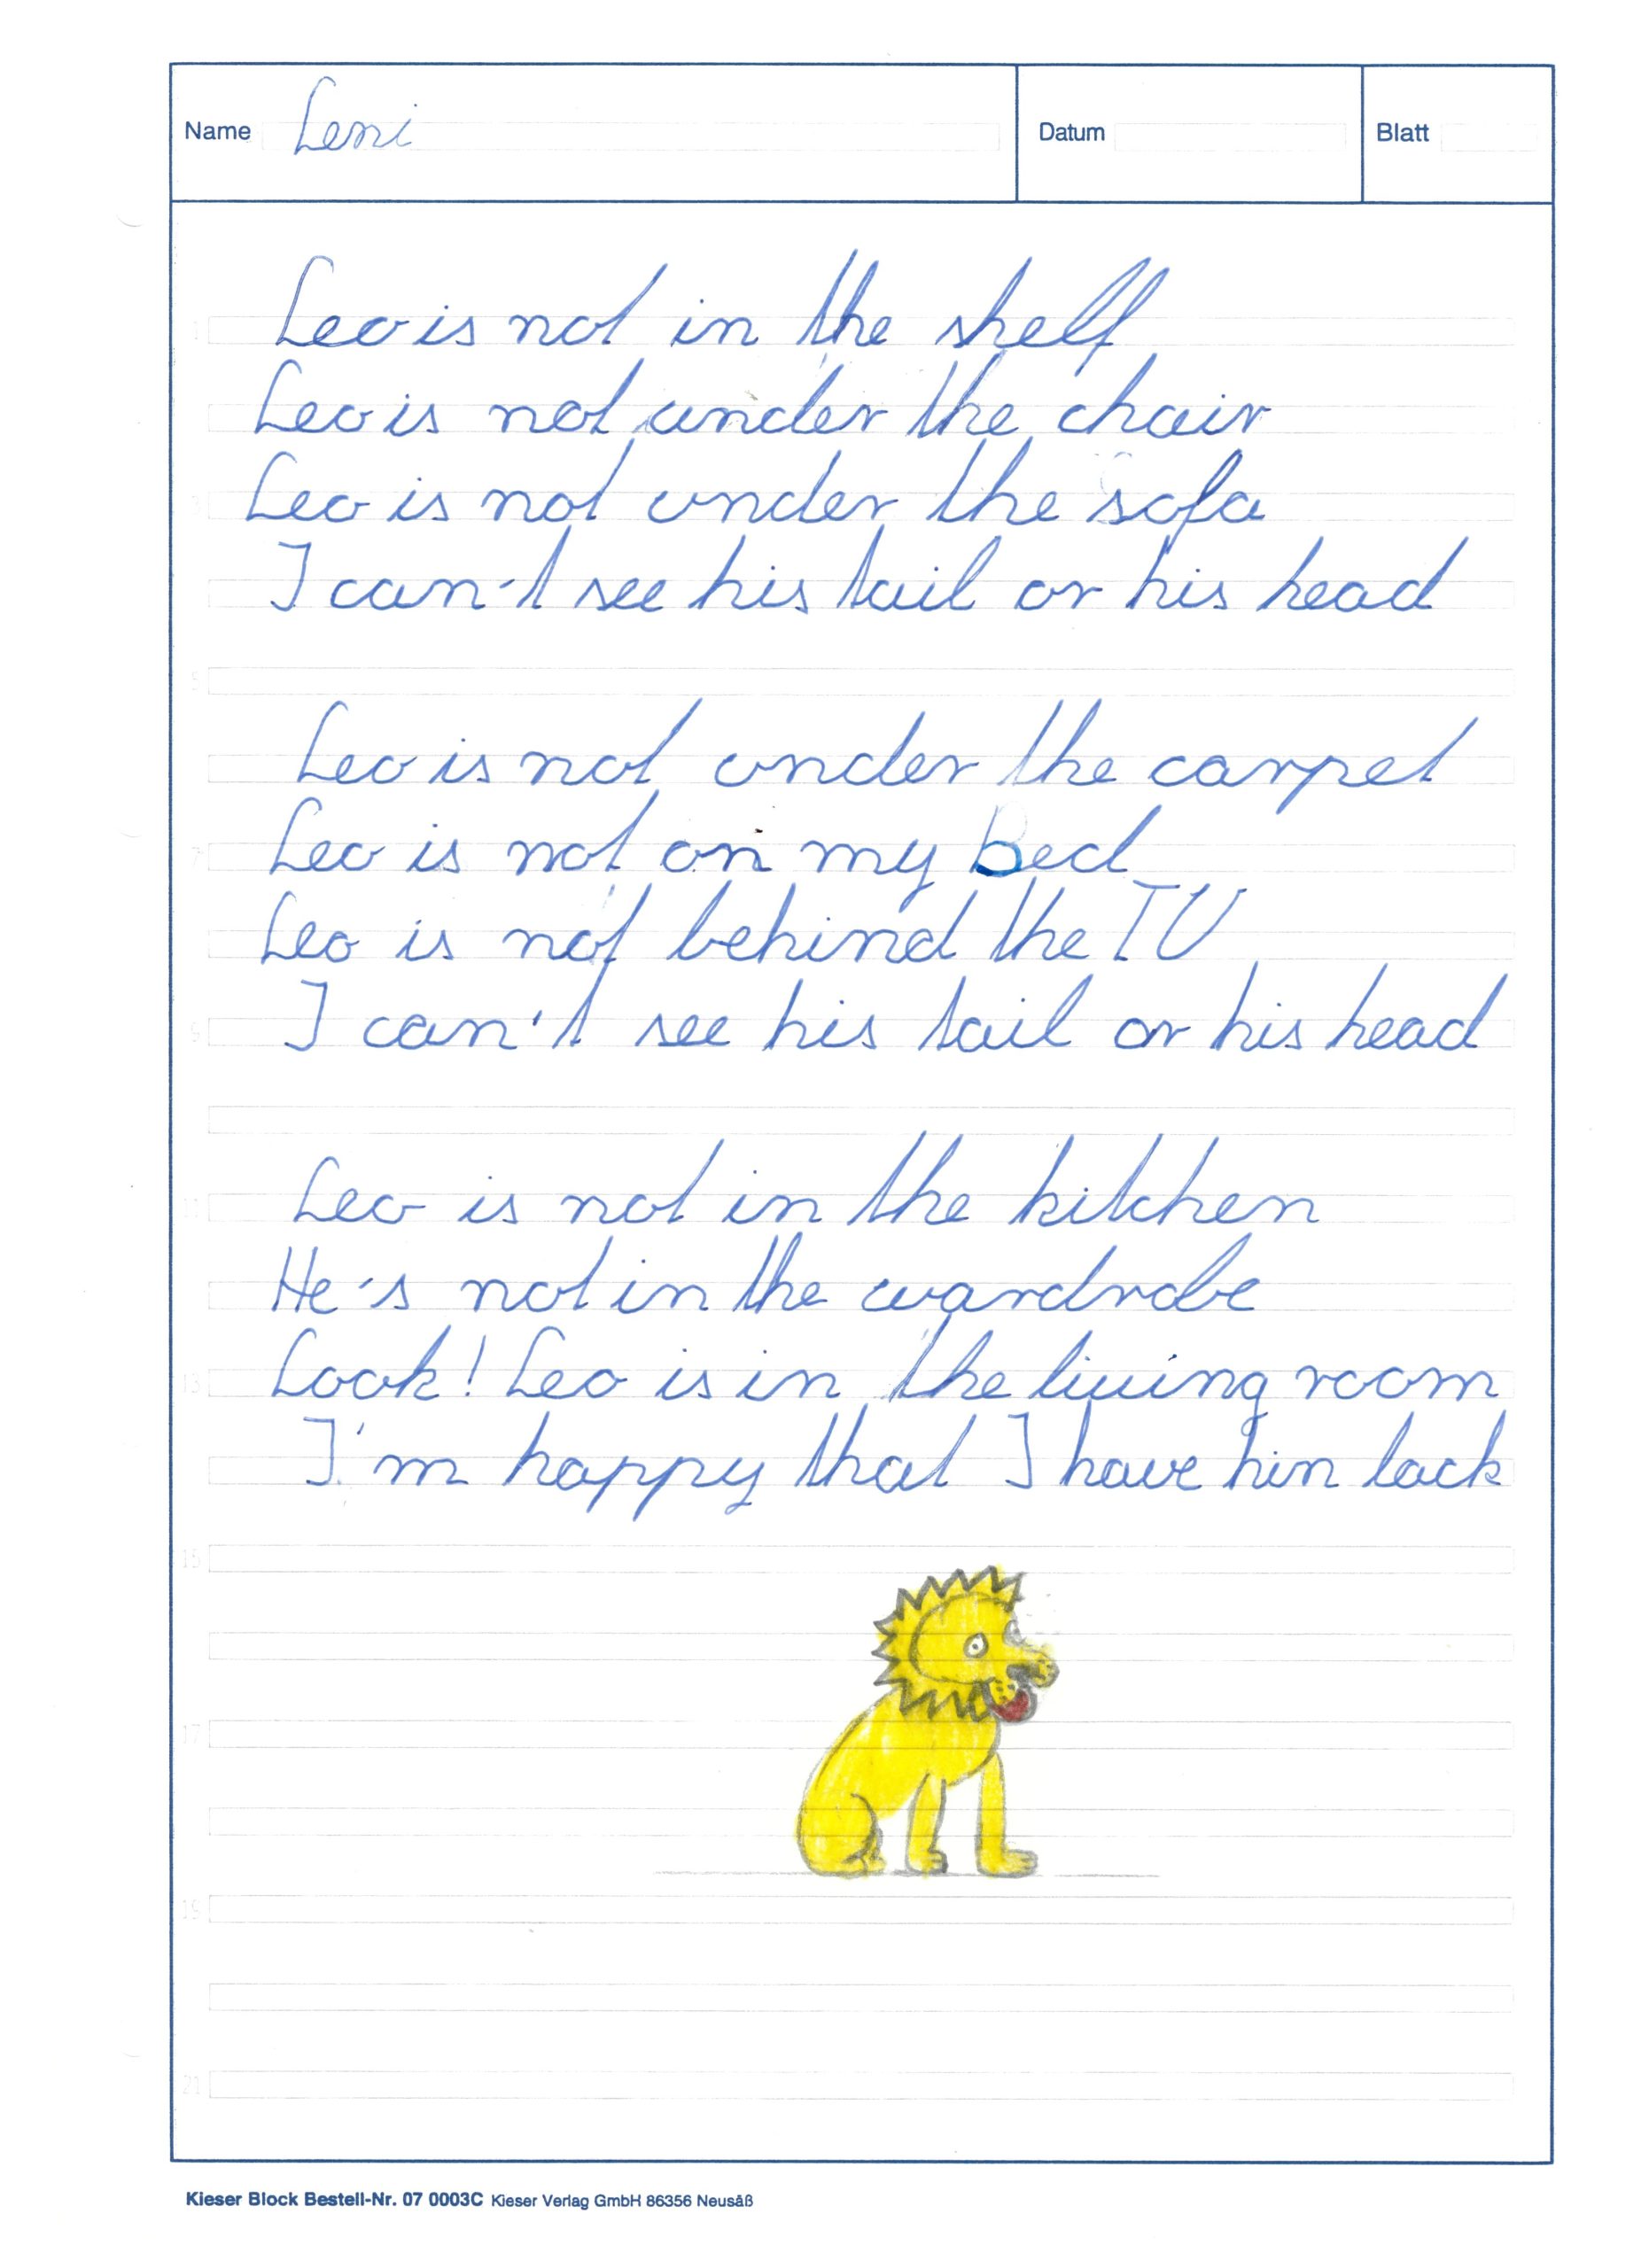 Name Leni Datum Blatt
Leo is not in the shelf
Leo is not under the chair
Leo is not under the sofa
I can't see his tail or his head
Leo is not under the carpet
Leo is not on my Bed
Leo is not behind the TV
I can't see his tail or his head
Leo is not in the kitchen
He's not in the wardrobe
Look! Leo is in the living room
I'm happy that I have him back
Kieser Block Bestell-Nr. 07 0003C Kieser Verlag GmbH 86356 Neusäß